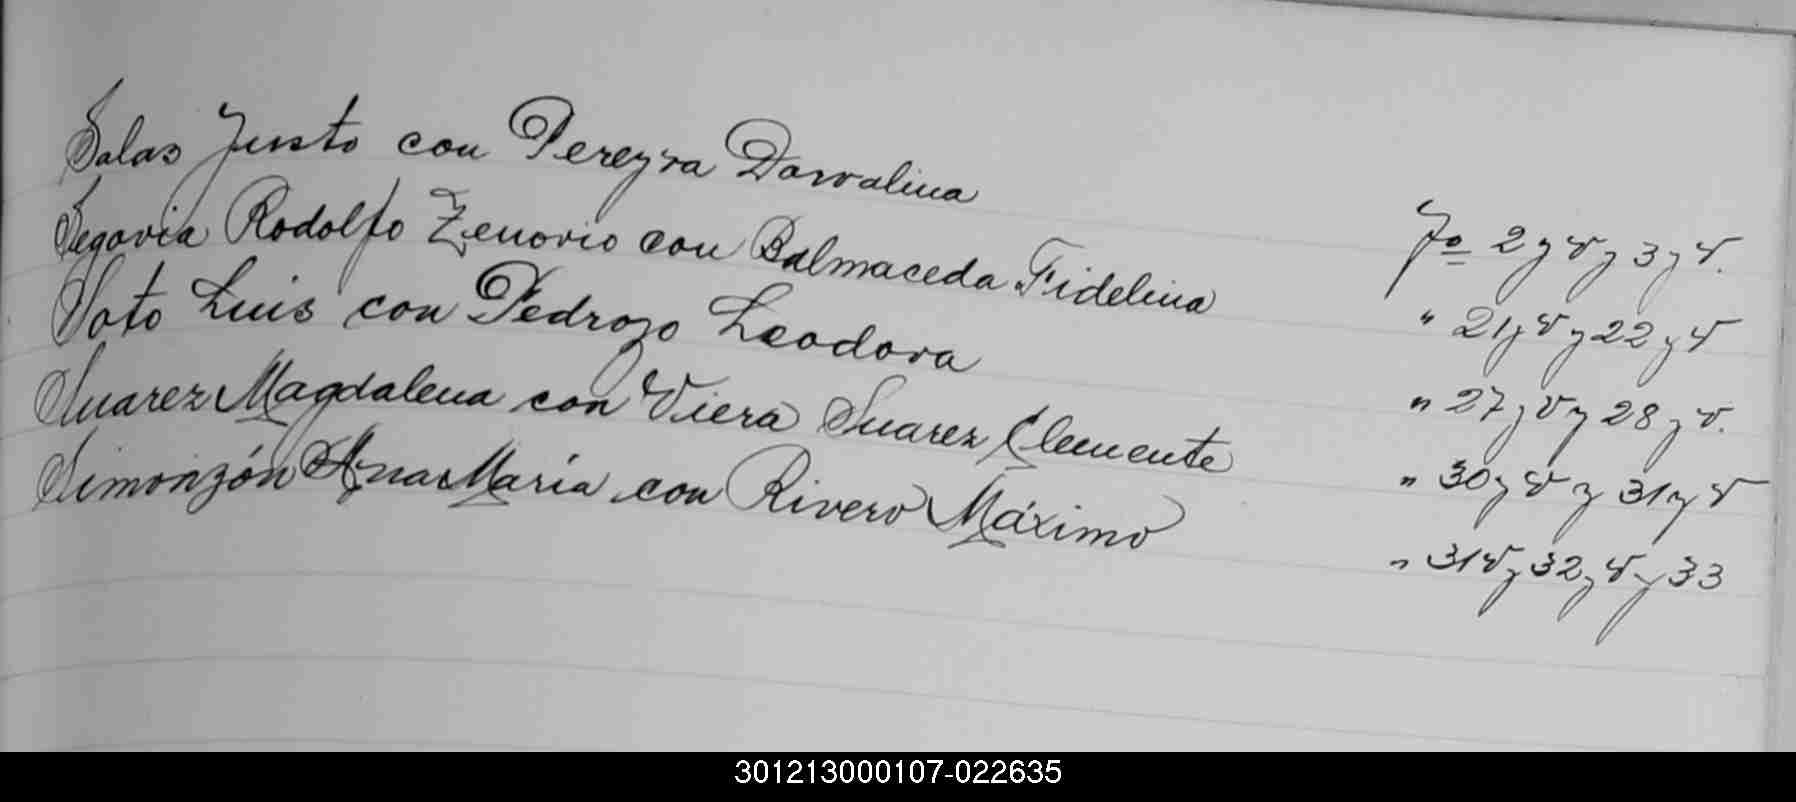 Salas Justo con Pereyra Dorvalina Fo 2 y v y 3 y v.
Segovia Rodolfo Zenovio con Balmaceda Fidelina " 21 y v y 22 y v
Soto Luis con Pedrozo Leodora " 27 y v y 28 y v.
Suarez Magdalena con Viera Suarez Clemente " 30 y v y 31 y v
Simonzón Ana María con Rivero Máximo " 31 v y 32 y v y 33
301213000107-022635